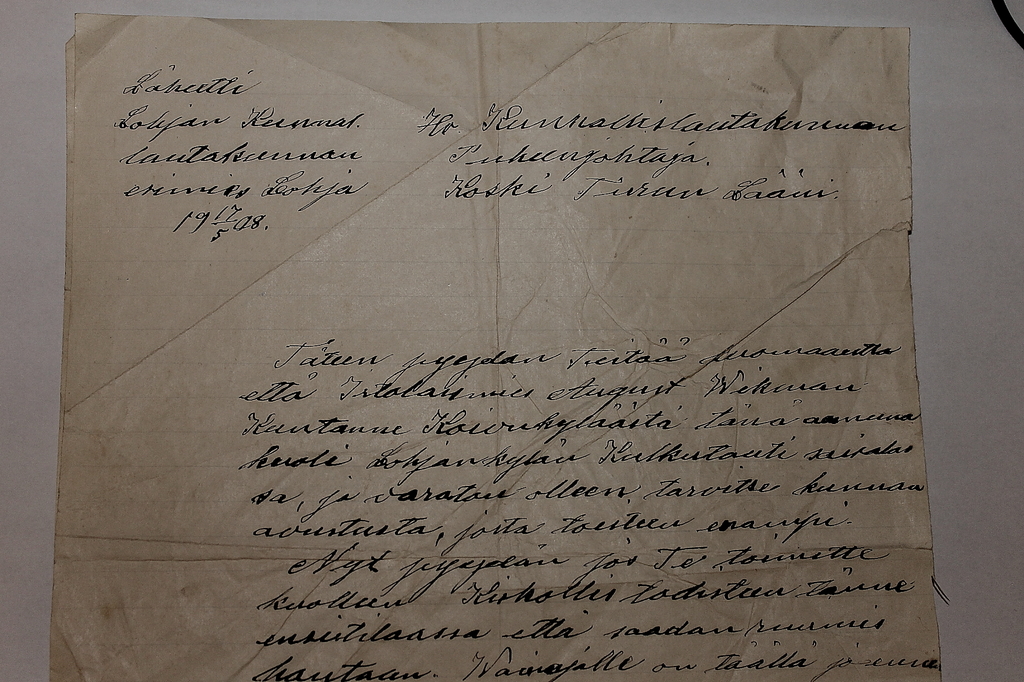 Lähetti
Lohjan Kunnal. Hr. Kunnallislautakunnan
lautakunnan Puheenjohtaja.
esimies Lohja Koski Turun Lääni.
19 17/5 08.
Täten pyydän Teitää huomaautta
että Itsolaismies August Wikman
Kuntanne Koivukyläästä tänä aamuna
kuoli Lohjankylän Kulkutauti sairalas
sa, ja varaton olleen, tarvitse kunnan
avustusta, josta toisteen enampi.
Nyt pyydän jos Te toimitte
kuolleen Kirkollis todisteen tänne
ensitilaassa että saadan ruumis
hautaan. Wainajalle on täällä